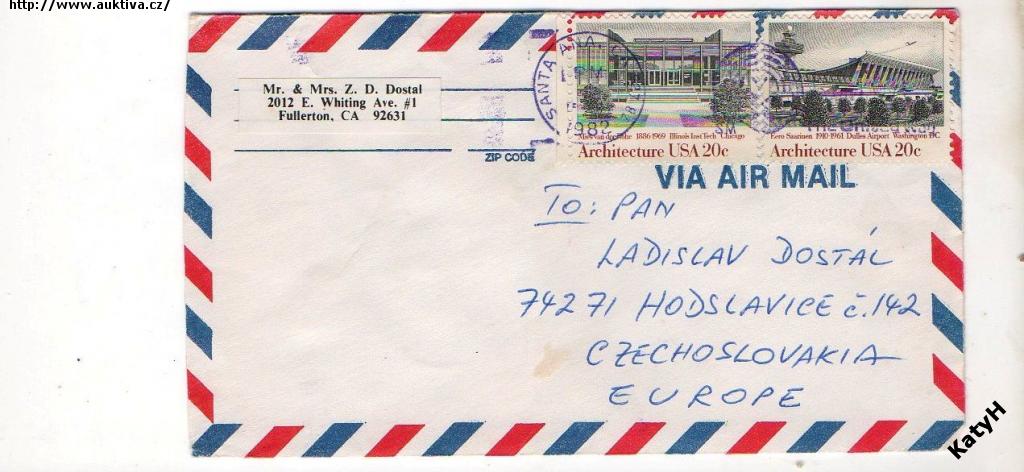 http://www.auktiva.cz/
Mr. & Mrs. Z. D. Dostal
2012 E. Whiting Ave. #1
Fullerton, CA 92631
ZIP CODE
SANTA ANA
PM
1982
Mies van der Rohe 1886-1969 Illinois Inst Tech Chicago
Architecture USA 20c
Eero Saarinen 1910-1961 Dulles Airport Washington DC
Architecture USA 20c
VIA AIR MAIL
To: PAN
LADISLAV DOSTÁL
742 71 HODSLAVICE č. 142
CZECHOSLOVAKIA
EUROPE
KatyH